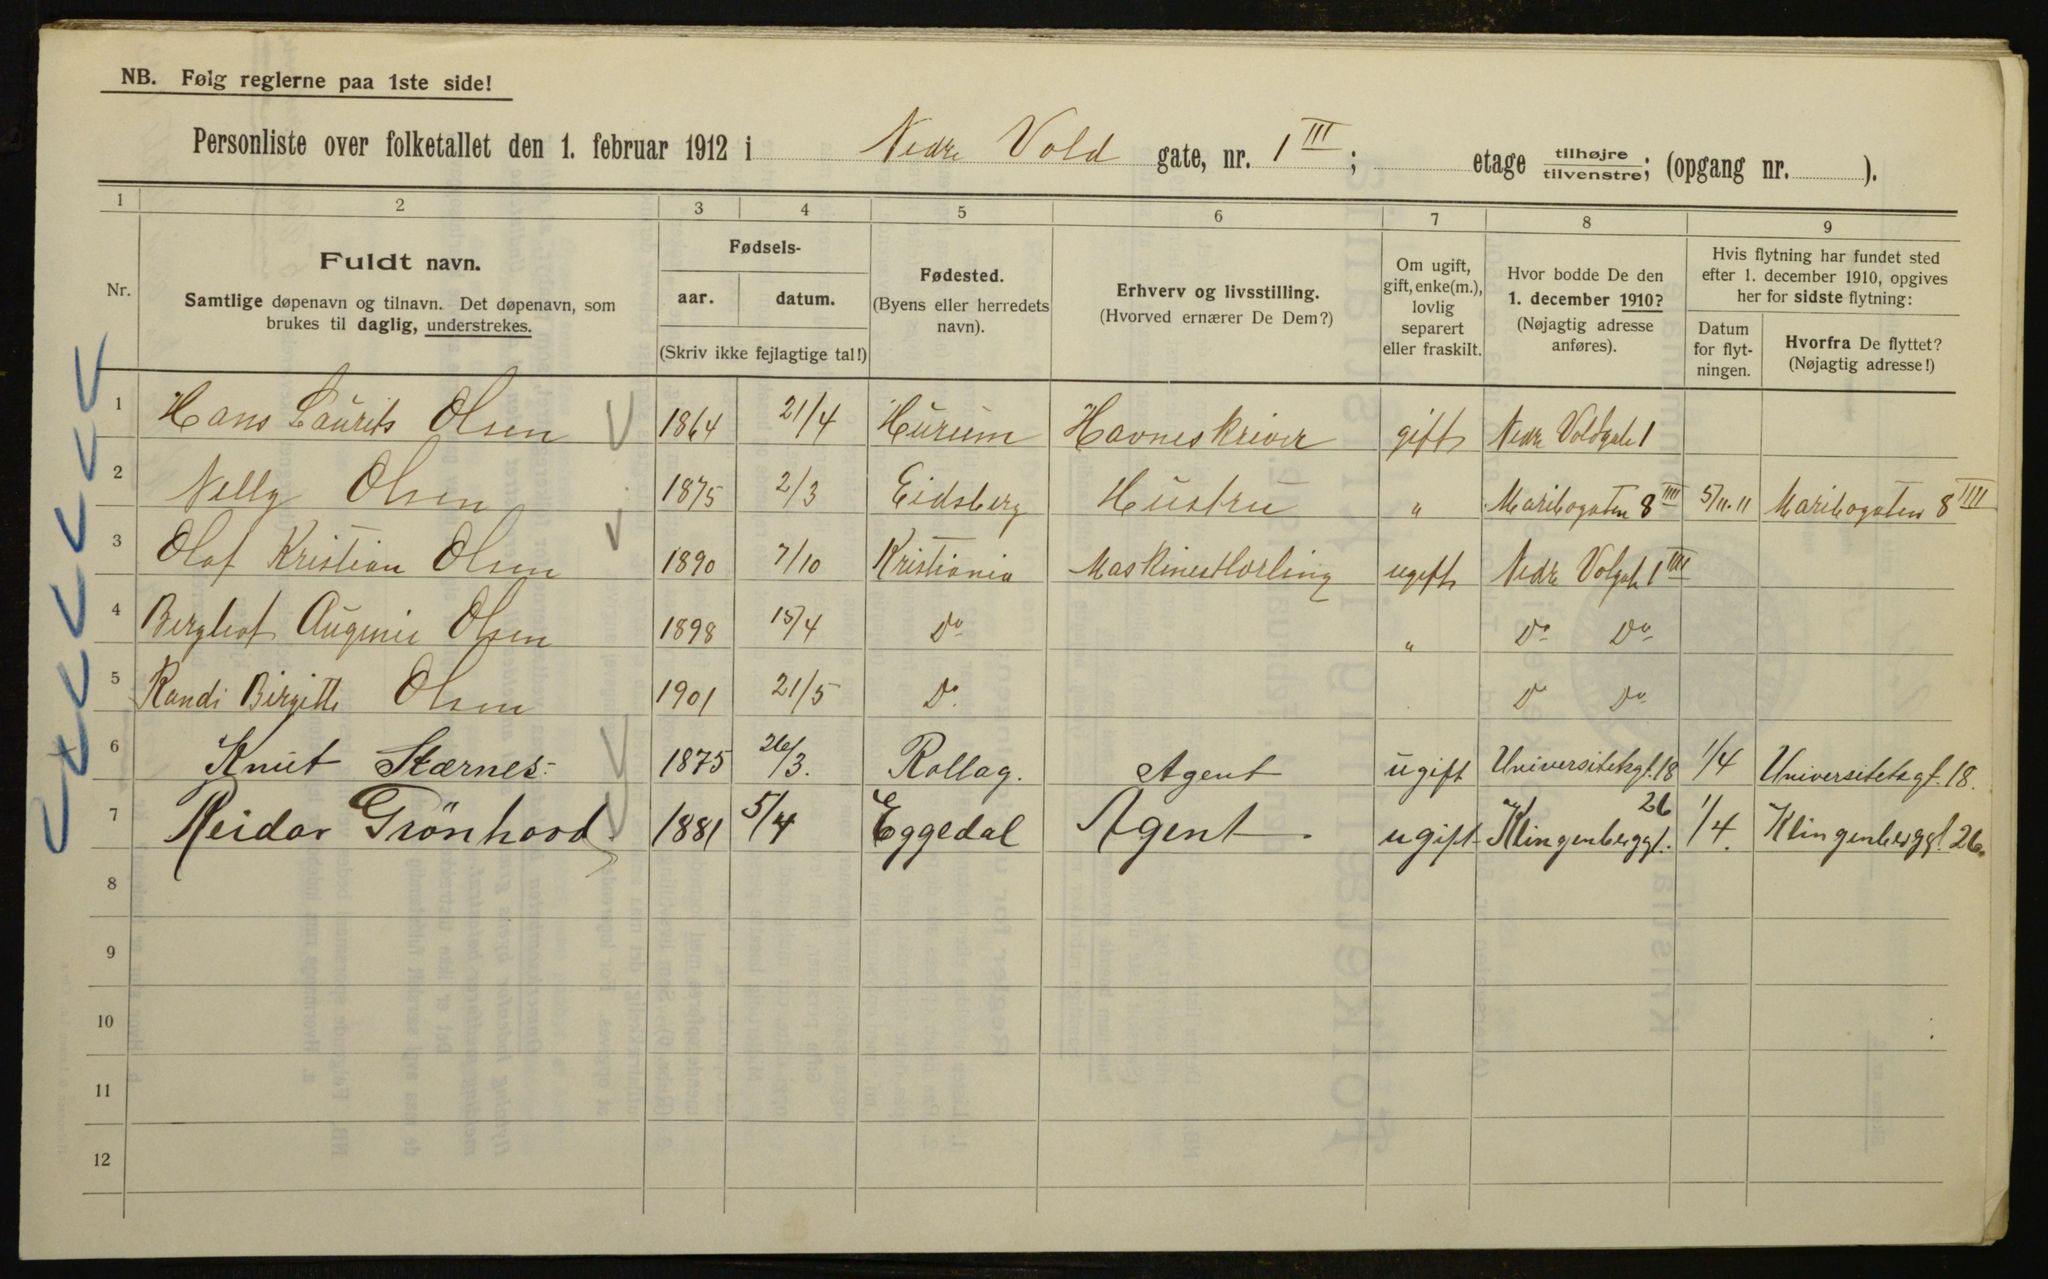 NB. Følg reglerne paa 1ste side!
Personliste over folketallet den 1. februar 1912 i Nedre Vold gate, nr. 1 III; etage tilhøjre/tilvenstre; (opgang nr. ).
1 2 3 4 5 6 7 8 9
Nr.
Fuldt navn.
Samtlige døpenavn og tilnavn. Det døpenavn, som
brukes til daglig, understrekes.
Fødsels-
aar. datum.
(Skriv ikke fejlagtige tal!)
Fødested.
(Byens eller herredets
navn).
Erhverv og livsstilling.
(Hvorved ernærer De Dem?)
Om ugift,
gift, enke(m.),
lovlig
separert
eller fraskilt.
Hvor bodde De den
1. december 1910?
(Nøjagtig adresse
anføres).
Hvis flytning har fundet sted
efter 1. december 1910, opgives
her for sidste flytning:
Datum
for flyt-
ningen.
Hvorfra De flyttet?
(Nøjagtig adresse!)
1 Hans Laurits Olsen 1864 21/4 Hurum Havneskriver gift Nedre Voldgate 1
2 Nelly Olsen 1875 2/3 Eidsberg Hustru " Maribogaten 8 IIII 5/11.11 Maribogaten 8 IIII
3 Olaf Kristian Olsen 1890 7/10 Kristiania ugift Nedre Volgate 1 III
4 Olsen 1898 15/4 Do " Do Do
5 Randi Birgitte Olsen 1901 21/5 Do Do Do
6 Knut Stærnes 1875 26/3. Rollag. Agent ugift Universitetsgt. 18 1/4 Universitetsgt. 18.
7 Reidar Grönhovd 1881 5/4 Eggedal Agent. ugift Klingenberggt. 26 1/4. Klingenberggt. 26.
8
9
10
11
12